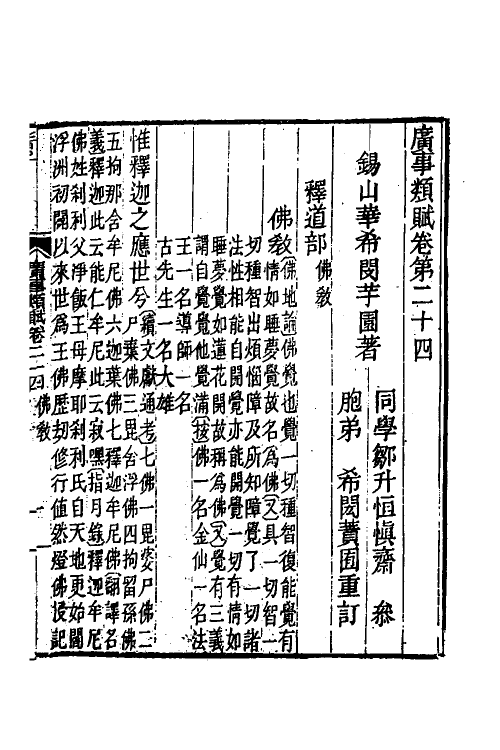 廣事類賦卷第二十四
錫山華希閔芋園著
同學鄒升恒愼齋 叅
胞弟 希閎蕡園重訂
釋道部 佛敎
佛敎 佛地論佛覺也覺一切種智復能覺有
情如睡夢覺故名爲佛 又 具一切智一
切種智出煩惱障及所知障覺了一切諸
法性相能自開覺亦能開覺一切有情如
睡夢覺如蓮花開故稱爲佛 又 覺有三義
謂自覺覺他覺滿 按 佛一名金仙一名法
王一名導師一名
古先生一名大雄
惟釋迦之應世兮 續文獻通考 七佛一毘婆尸佛二
尸棄佛三毘舍浮佛四拘留孫佛
五拘那含牟尼佛六迦葉佛七釋迦牟尼佛 翻譯名
義 釋迦此云能仁牟尼此云寂嘿 指月錄 釋迦牟尼
佛姓刹利父淨飯王母摩耶刹利氏自天地更始閻
浮洲初闢以來世爲王佛歷劫修行值然燈佛授記
廣事類賦卷二十四 佛敎 一